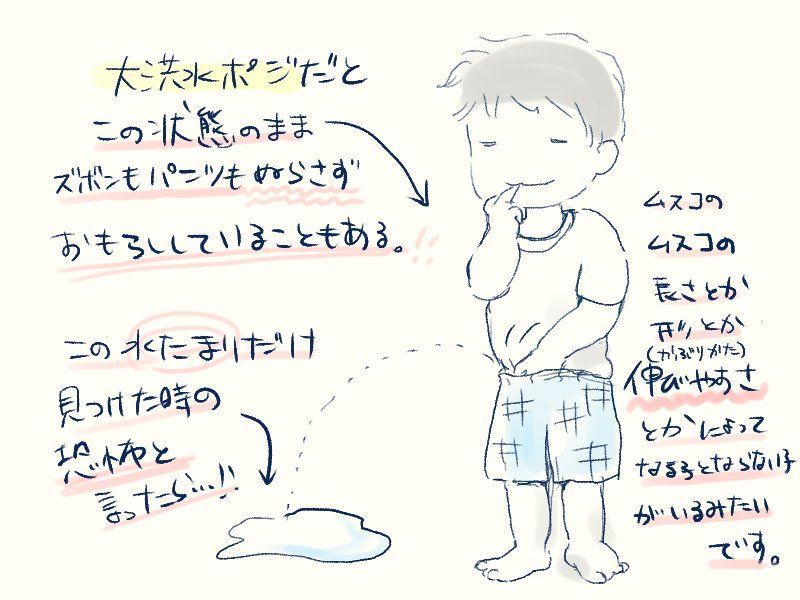 大洪水ポジだと
この状態のまま
ズボンもパンツもぬらさず
おもらししていることもある。!!
この水たまりだけ
見つけた時の
恐怖と
言ったら…!!
ムスコの
ムスコの
長さとか
形とか
(かぶりかた)
伸びやすさ
とかによって
なる子とならない子
がいるみたい
です。